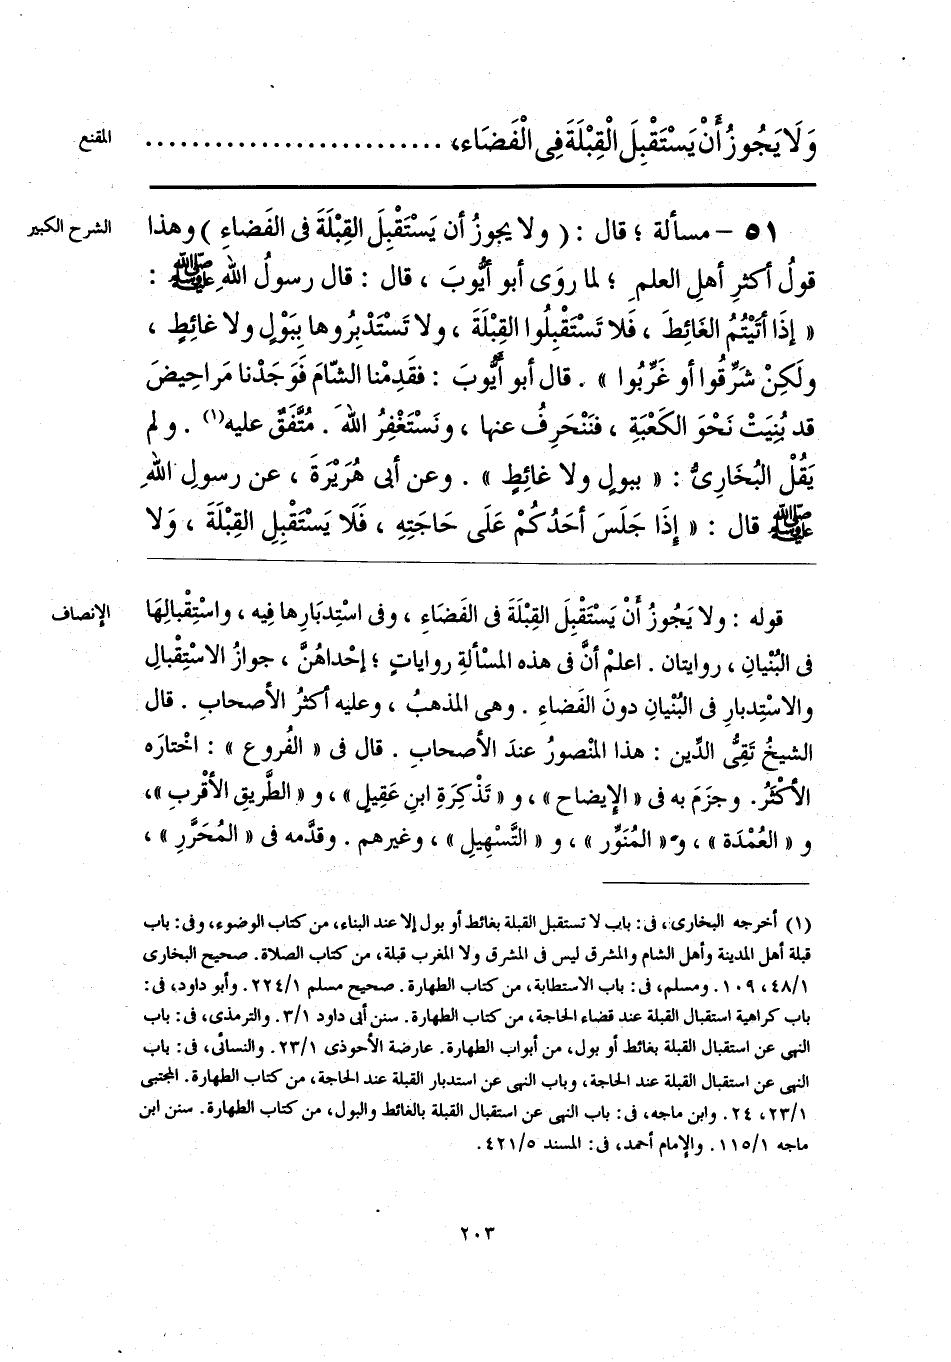 المقنع وَلَا يَجُوزُ أَنْ يَسْتَقْبِلَ الْقِبْلَةَ فِى الْفَضَاءِ، ..........................
الشرح الكبير ٥١ – مسألة ؛ قال : ( ولا يجوزُ أن يَسْتَقْبِلَ القِبْلَةَ فى الفَضاءِ ) وهذا
قولُ أكثرِ أهلِ العلمِ ؛ لما روَى أبو أيُّوبَ ، قال : قال رسولُ اللهِ ﷺ :
« إذَا أتَيْتُمُ الغَائِطَ ، فَلا تَسْتَقْبِلُوا القِبْلَةَ ، ولا تَسْتَدْبِرُوها بِبَوْلٍ ولا غائِطٍ ،
ولَكِنْ شَرِّقُوا أو غَرِّبُوا » . قال أبو أيُّوبَ : فقَدِمْنا الشّامَ فوَجَدْنا مَراحِيضَ
قد بُنِيَتْ نَحْوَ الكَعْبَةِ ، فنَنْحَرِفُ عنها ، ونَسْتَغْفِرُ اللهَ . مُتَّفَقٌ عليه(١) . ولم
يَقُلْ البُخَارِىُّ : « ببولٍ ولا غائِطٍ » . وعن أبى هُرَيْرَةَ ، عن رسولِ اللهِ
ﷺ قال : « إِذَا جَلَسَ أحَدُكُمْ عَلَى حَاجَتِهِ ، فَلَا يَسْتَقْبِلِ القِبْلَةَ ، وَلَا
الإنصاف قوله : ولا يَجُوزُ أَنْ يَسْتَقْبِلَ القِبْلَةَ فى الفَضَاءِ ، وفى اسْتِدبَارِها فِيه ، واسْتِقْبالِها
فى البُنْيانِ ، روايتان . اعلمْ أنَّ فى هذه المسْألةِ رواياتٍ ؛ إحْداهُنَّ ، جوازُ الاسْتِقْبالِ
والاسْتِدبارِ فى البُنْيانِ دونَ الفَضاءِ . وهى المذهبُ ، وعليه أكثرُ الأصحابِ . قال
الشيخُ تَقِىُّ الدِّين : هذا المنْصورُ عندَ الأصحابِ . قال فى « الفُروعِ » : اخْتارَه
الأكْثَرُ . وجزَمَ به فى « الإيضاح » ، و « تَذْكِرَةِ ابنِ عَقِيلٍ » ، و « الطَّريقِ الأقْربِ » ،
و « العُمْدَة » ، و « المُنَوِّر » ، و « التَّسْهِيلِ » ، وغيرِهم . وقدَّمه فى « المُحَرَّرِ » ،
(١) أخرجه البخارى ، فى : باب لا تستقبل القبلة بغائط أو بول إلا عند البناء، من كتاب الوضوء، وفى : باب
قبلة أهل المدينة وأهل الشام والمشرق ليس فى المشرق ولا المغرب قبلة، من كتاب الصلاة. صحيح البخارى
٤٨/١، ١٠٩. ومسلم، فى : باب الاستطابة، من كتاب الطهارة. صحيح مسلم ٢٢٤/١. وأبو داود، فى :
باب كراهية استقبال القبلة عند قضاء الحاجة، من كتاب الطهارة. سنن أبى داود ٣/١. والترمذى، فى : باب
النهى عن استقبال القبلة بغائط أو بول، من أبواب الطهارة. عارضة الأحوذى ٢٣/١. والنسائى، فى : باب
النهى عن استقبال القبلة عند الحاجة، وباب النهى عن استدبار القبلة عند الحاجة، من كتاب الطهارة. المجتبى
٢٣/١، ٢٤. وابن ماجه، فى : باب النهى عن استقبال القبلة بالغائط والبول، من كتاب الطهارة. سنن ابن
ماجه ١١٥/١. والإمام أحمد، فى : المسند ٤٢١/٥.
٢٠٣